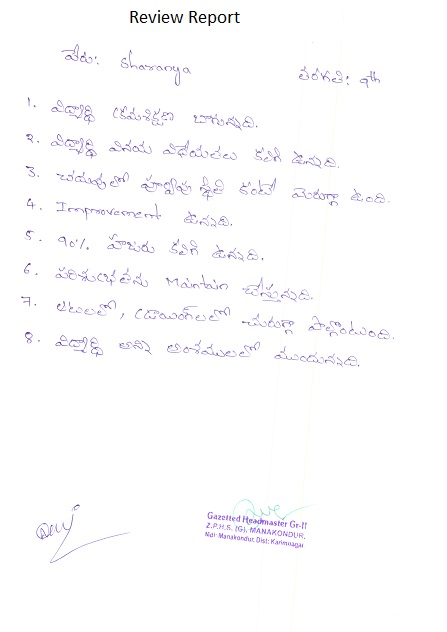 Review Report
పేరు: Sharanya
తరగతి: 9th
1. విద్యార్థి క్రమశిక్షణ బాగున్నది.
2. విద్యార్థి వినయ విధేయతలు కలిగి ఉన్నది.
3. చదువులో పూర్వపు స్థితి కంటే మెరుగ్గా ఉంది.
4. Improvement ఉన్నది.
5. 90% హాజరు కలిగి ఉన్నది.
6. పరిశుభ్రతను Maintain చేస్తున్నది.
7. ఆటలలో, డ్రాయింగ్‌లలో చురుగ్గా పాల్గొంటుంది.
8. విద్యార్థి అన్ని అంశములలో ముందున్నది.
Gazetted Headmaster Gr-II
Z.P.H.S. (G), MANAKONDUR,
Mdl: Manakondur, Dist: Karimnagar